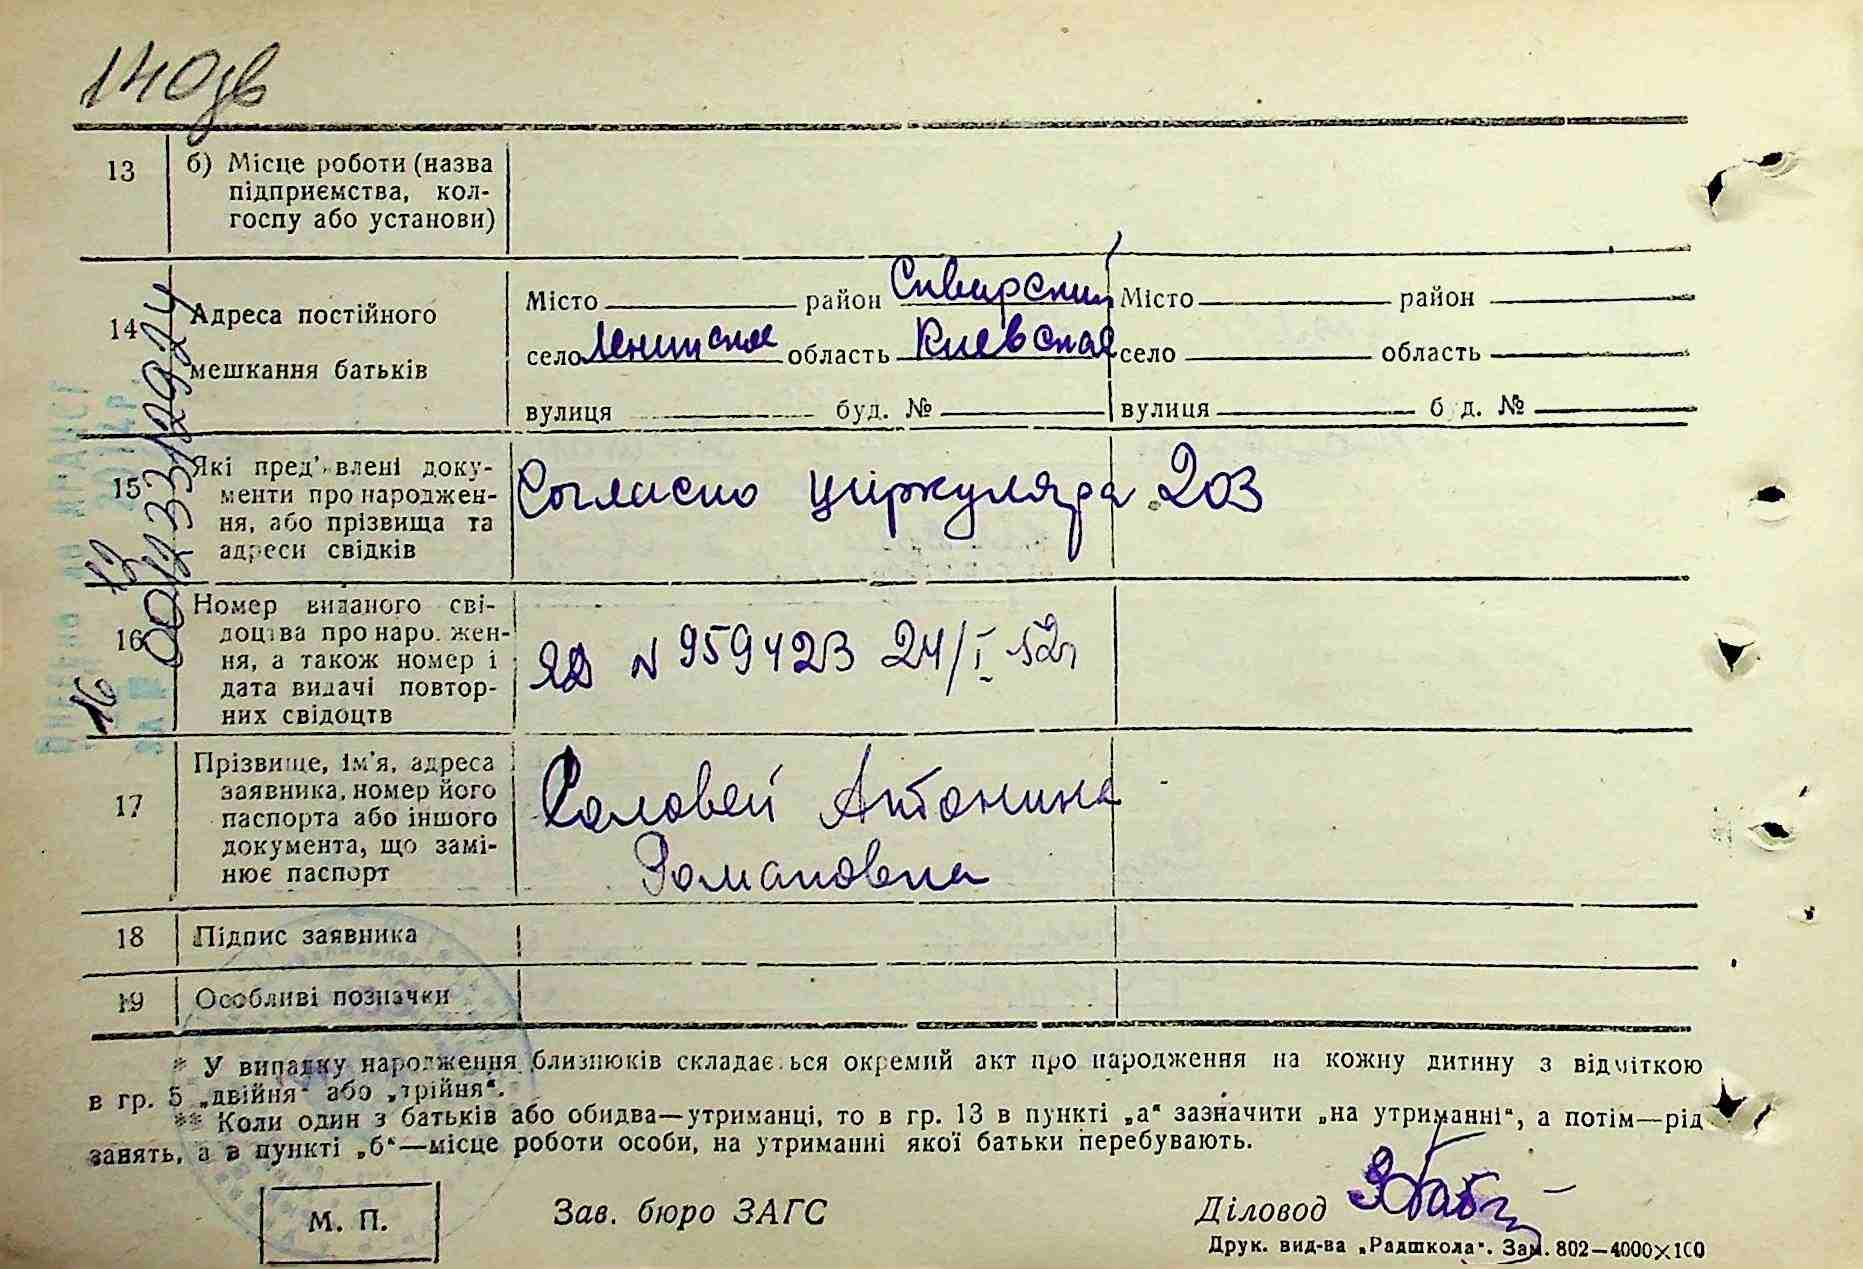 140зв
13 б) Місце роботи (назва
підприємства, кол-
госпу або установи)
14 Адреса постійного
мешкання батьків
Місто район Сквирский Місто район
село Ленинское область Киевская село область
вулиця буд. № вулиця буд. №
15 Які пред'влені доку-
менти про народжен-
ня, або прізвища та
адреси свідків
Согласно циркуляра 203
16 Номер виданого сві-
доцтва про народжен-
ня, а також номер і
дата видачі повтор-
них свідоцтв
ЯД N 959423 24/I 52г
17 Прізвище, ім'я, адреса
заявника, номер його
паспорта або іншого
документа, що замі-
нює паспорт
Соловей Антонина
Романовна
18 Підпис заявника
19 Особливі позначки
* У випадку народження близнюків складається окремий акт про народження на кожну дитину з відміткою
в гр. 5 „двійня“ або „трійня“.
** Коли один з батьків або обидва—утриманці, то в гр. 13 в пункті „а“ зазначити „на утриманні“, а потім—рід
занять, а в пункті „б“—місце роботи особи, на утриманні якої батьки перебувають.
М. П. Зав. бюро ЗАГС Діловод
Друк. вид-ва „Радшкола“. Зам. 802—4000×100